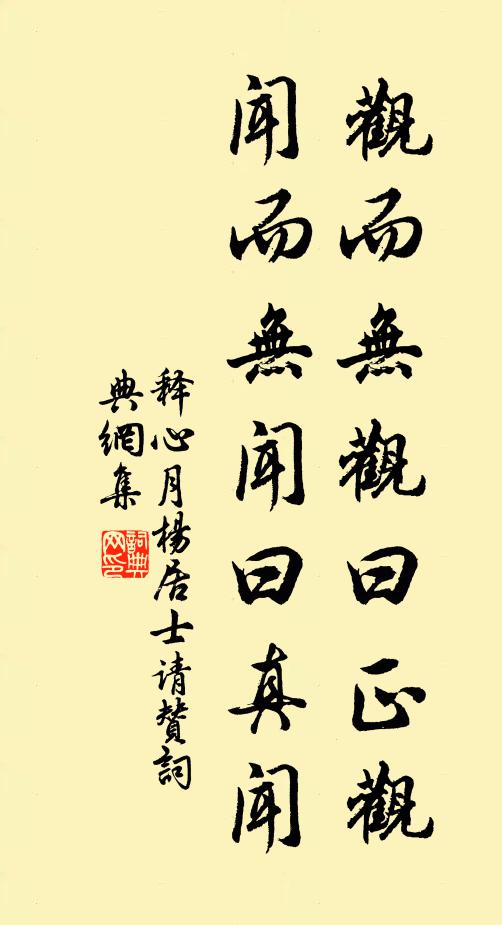 觀而無觀曰正觀
聞而無聞曰真聞
释心月楊居士请赞詞
典網集
詞典
网印